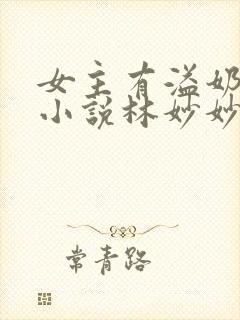 女主有溢奶
小说林妙妙
常青路